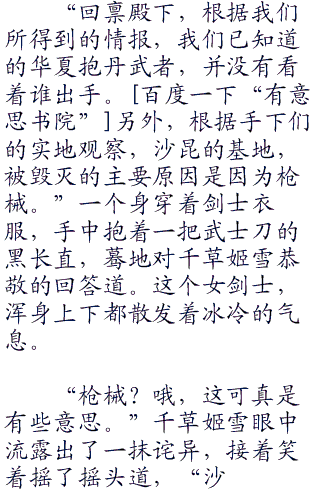 “回禀殿下，根据我们
所得到的情报，我们已知道
的华夏抱丹武者，并没有看
着谁出手。[百度一下“有意
思书院”]另外，根据手下们
的实地观察，沙昆的基地，
被毁灭的主要原因是因为枪
械。”一个身穿着剑士衣
服，手中抱着一把武士刀的
黑长直，蓦地对千草姬雪恭
敬的回答道。这个女剑士，
浑身上下都散发着冰冷的气
息。
“枪械？哦，这可真是
有些意思。”千草姬雪眼中
流露出了一抹诧异，接着笑
着摇了摇头道，“沙